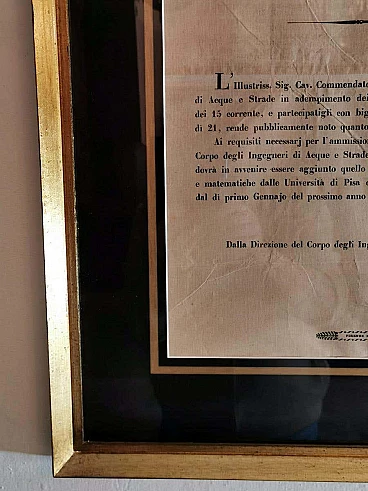 L'Illustriss. Sig. Cav. Commendato
di Acque e Strade in adempimento dei
dei 15 corrente, e partecipatigli con big
di 21, rende pubblicamente noto quanto
Ai requisiti necessarj per l'ammission
Corpo degli Ingegneri di Acque e Strade
dovrà in avvenire essere aggiunto quello
e matematiche dalle Università di Pisa
dal dì primo Gennajo del prossimo anno
Dalla Direzione del Corpo degli Ing